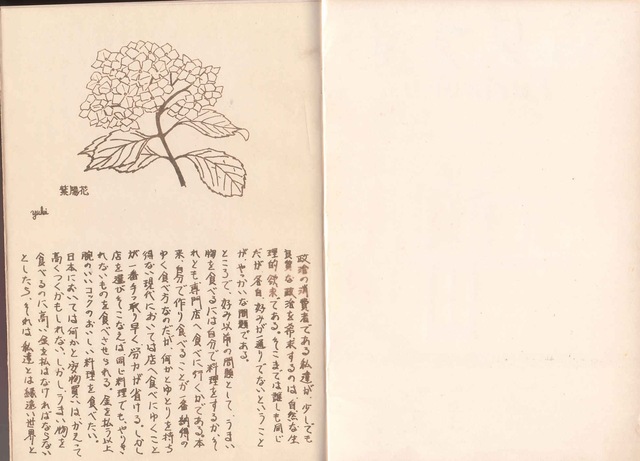 紫陽花
yuki
政治の消費者である私達が、少しでも
良質な政治を希求するのは、自然な生
理的欲求である。そこまでは誰しも同じ
だが各自、好みが一通りでないということ
が、やっかいな問題である。
ところで、好み以前の問題として、うまい
物を食べるには自分で料理をするか、そ
れとも専門店へ食べに行くかである。本
来、自分で作り食べることが一番納得の
ゆく食べ方なのだが、何かとゆとりを持ち
得ない現代においては店へ食べにゆくこと
が一番手っ取り早く、労力が省ける。しかし
店を選びそこなえば同じ料理でも、やりき
れないものを食べさせられる。金を払う以上
腕のいいコックのおいしい料理を食べたい。
日本においては何かと安物買いは、かえって
高くつくかもしれない。しかし、うまい物を
食べるのに、高い金を払はなければならない
としたら、それは私達とは縁遠い世界と